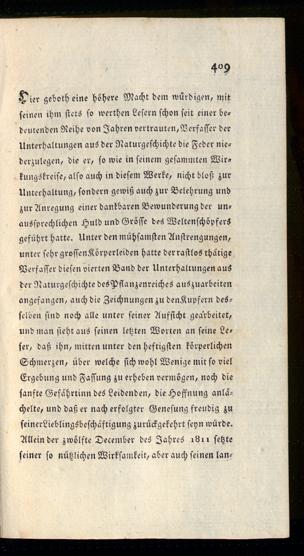 409
Hier geboth eine höhere Macht dem würdigen, mit
seinen ihm stets so werthen Lesern schon seit einer be-
deutenden Reihe von Jahren vertrauten, Verfasser der
Unterhaltungen aus der Naturgeschichte die Feder nie-
derzulegen, die er, so wie in seinem gesammten Wir-
kungskreise, also auch in diesem Werke, nicht bloß zur
Unterhaltung, sondern gewiß auch zur Belehrung und
zur Anregung einer dankbaren Bewunderung der un-
aussprechlichen Huld und Grösse des Weltenschöpfers
geführt hatte. Unter den mühsamsten Anstrengungen,
unter sehr grossen Körperleiden hatte der rastlos thätige
Verfasser diesen vierten Band der Unterhaltungen aus
der Naturgeschichte des Pflanzenreiches auszuarbeiten
angefangen, auch die Zeichnungen zu den Kupfern des-
selben sind noch alle unter seiner Aufsicht gearbeitet,
und man sieht aus seinen letzten Worten an seine Le-
ser, daß ihn, mitten unter den heftigsten körperlichen
Schmerzen, über welche sich wohl Wenige mit so viel
Ergebung und Fassung zu erheben vermögen, noch die
sanfte Gefährtinn des Leidenden, die Hoffnung anlä-
chelte, und daß er nach erfolgter Genesung freudig zu
seiner Lieblingsbeschäftigung zurückgekehrt seyn würde.
Allein der zwölfte December des Jahres 1811 setzte
seiner so nützlichen Wirksamkeit, aber auch seinen lan-